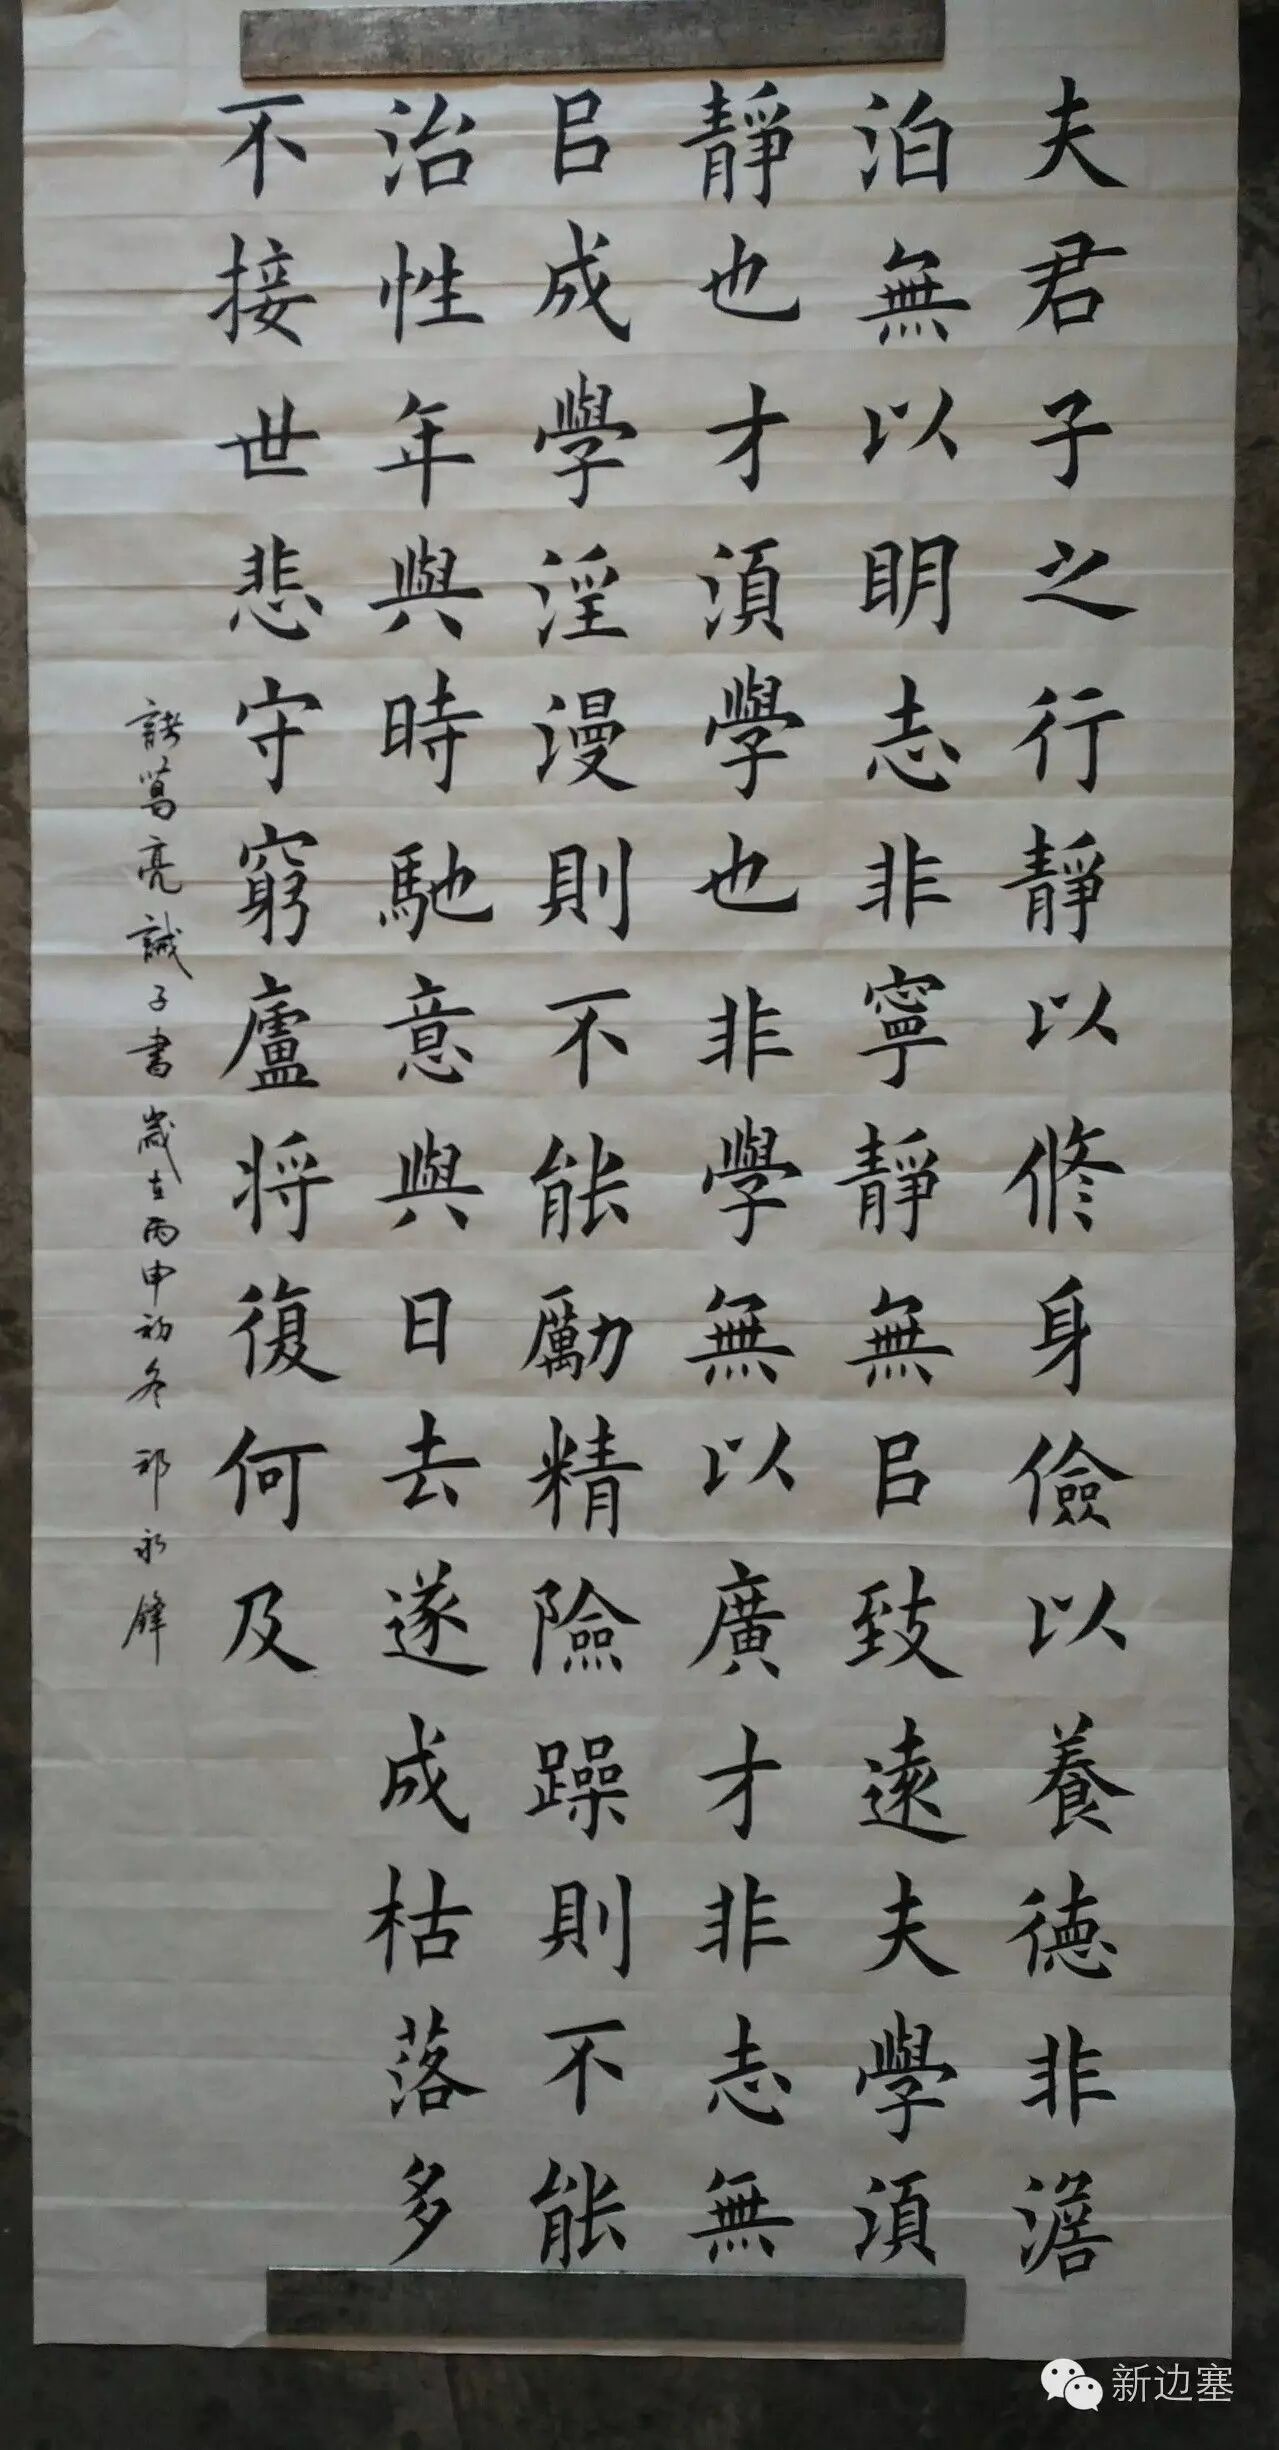 夫君子之行靜以脩身儉以養德非澹
泊無以明志非寧靜無㠯致遠夫學須
靜也才須學也非學無以廣才非志無
㠯成學淫漫則不能勵精險躁則不能
治性年與時馳意與日去遂成枯落多
不接世悲守窮廬将復何及
諸葛亮誡子書歲在丙申初冬 祁永鋒
新边塞